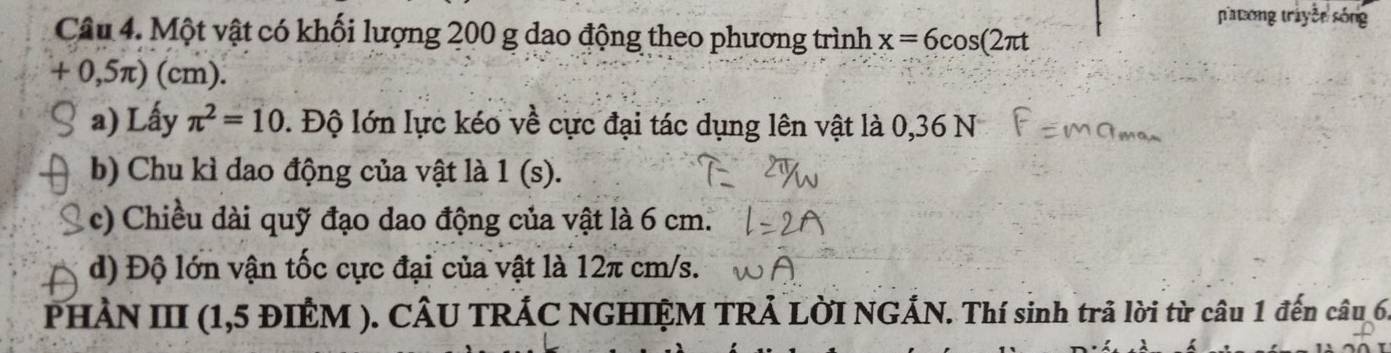 phương truyền sóng
Câu 4. Một vật có khối lượng 200 g dao động theo phương trình x = 6cos(2πt
+ 0,5π) (cm).
S a) Lấy π² = 10. Độ lớn lực kéo về cực đại tác dụng lên vật là 0,36 N F = mamax
Đ b) Chu kì dao động của vật là 1 (s). T = 2π/w
S c) Chiều dài quỹ đạo dao động của vật là 6 cm. l = 2A
Đ d) Độ lớn vận tốc cực đại của vật là 12π cm/s. wA
PHẦN III (1,5 ĐIỂM ). CÂU TRẮC NGHIỆM TRẢ LỜI NGẮN. Thí sinh trả lời từ câu 1 đến câu 6.